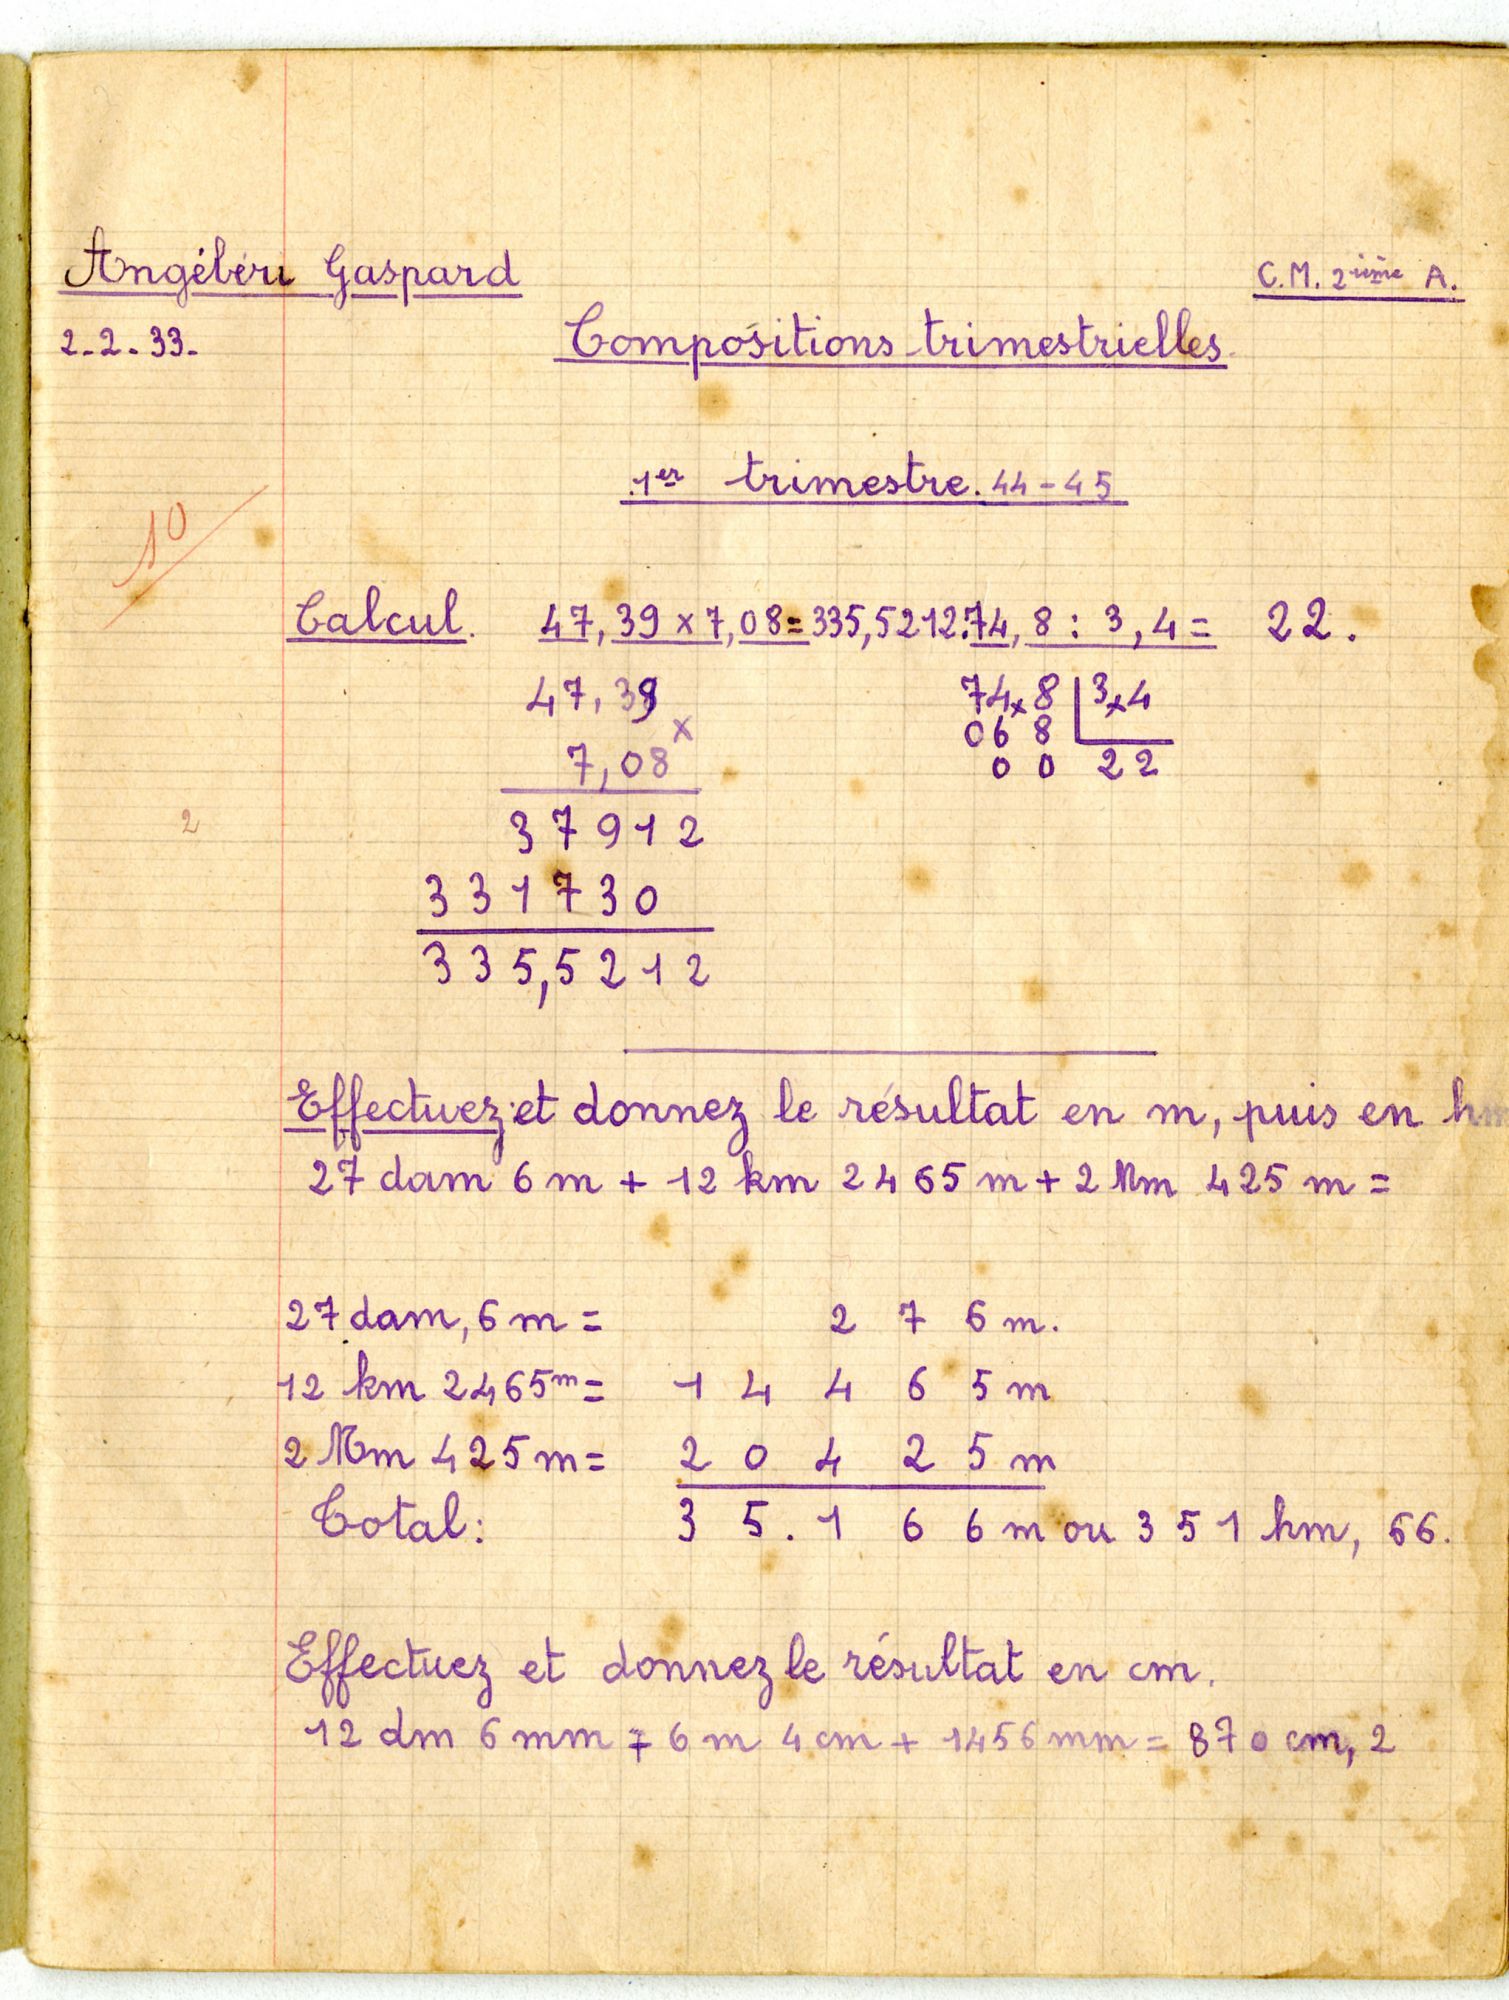 Angébéri Gaspard
C.M. 2ième A.
2-2-33.
Compositions trimestrielles.
1er trimestre. 44-45
10
Calcul. 47,39 x 7,08 = 335,5212. 74,8 : 3,4 = 22.
47,39
x
7,08
37912
331730
335,5212
74x8 3x4
068
00 22
2
Effectuez et donnez le résultat en m, puis en hm
27 dam 6 m + 12 km 2465 m + 2 Mm 425 m =
27 dam, 6 m = 276 m.
12 km 2465 m = 14465 m
2 Mm 425 m = 20425 m
Total: 35.166 m ou 351 hm, 66.
Effectuez et donnez le résultat en cm.
12 dm 6 mm + 6 m 4 cm + 1456 mm = 870 cm, 2